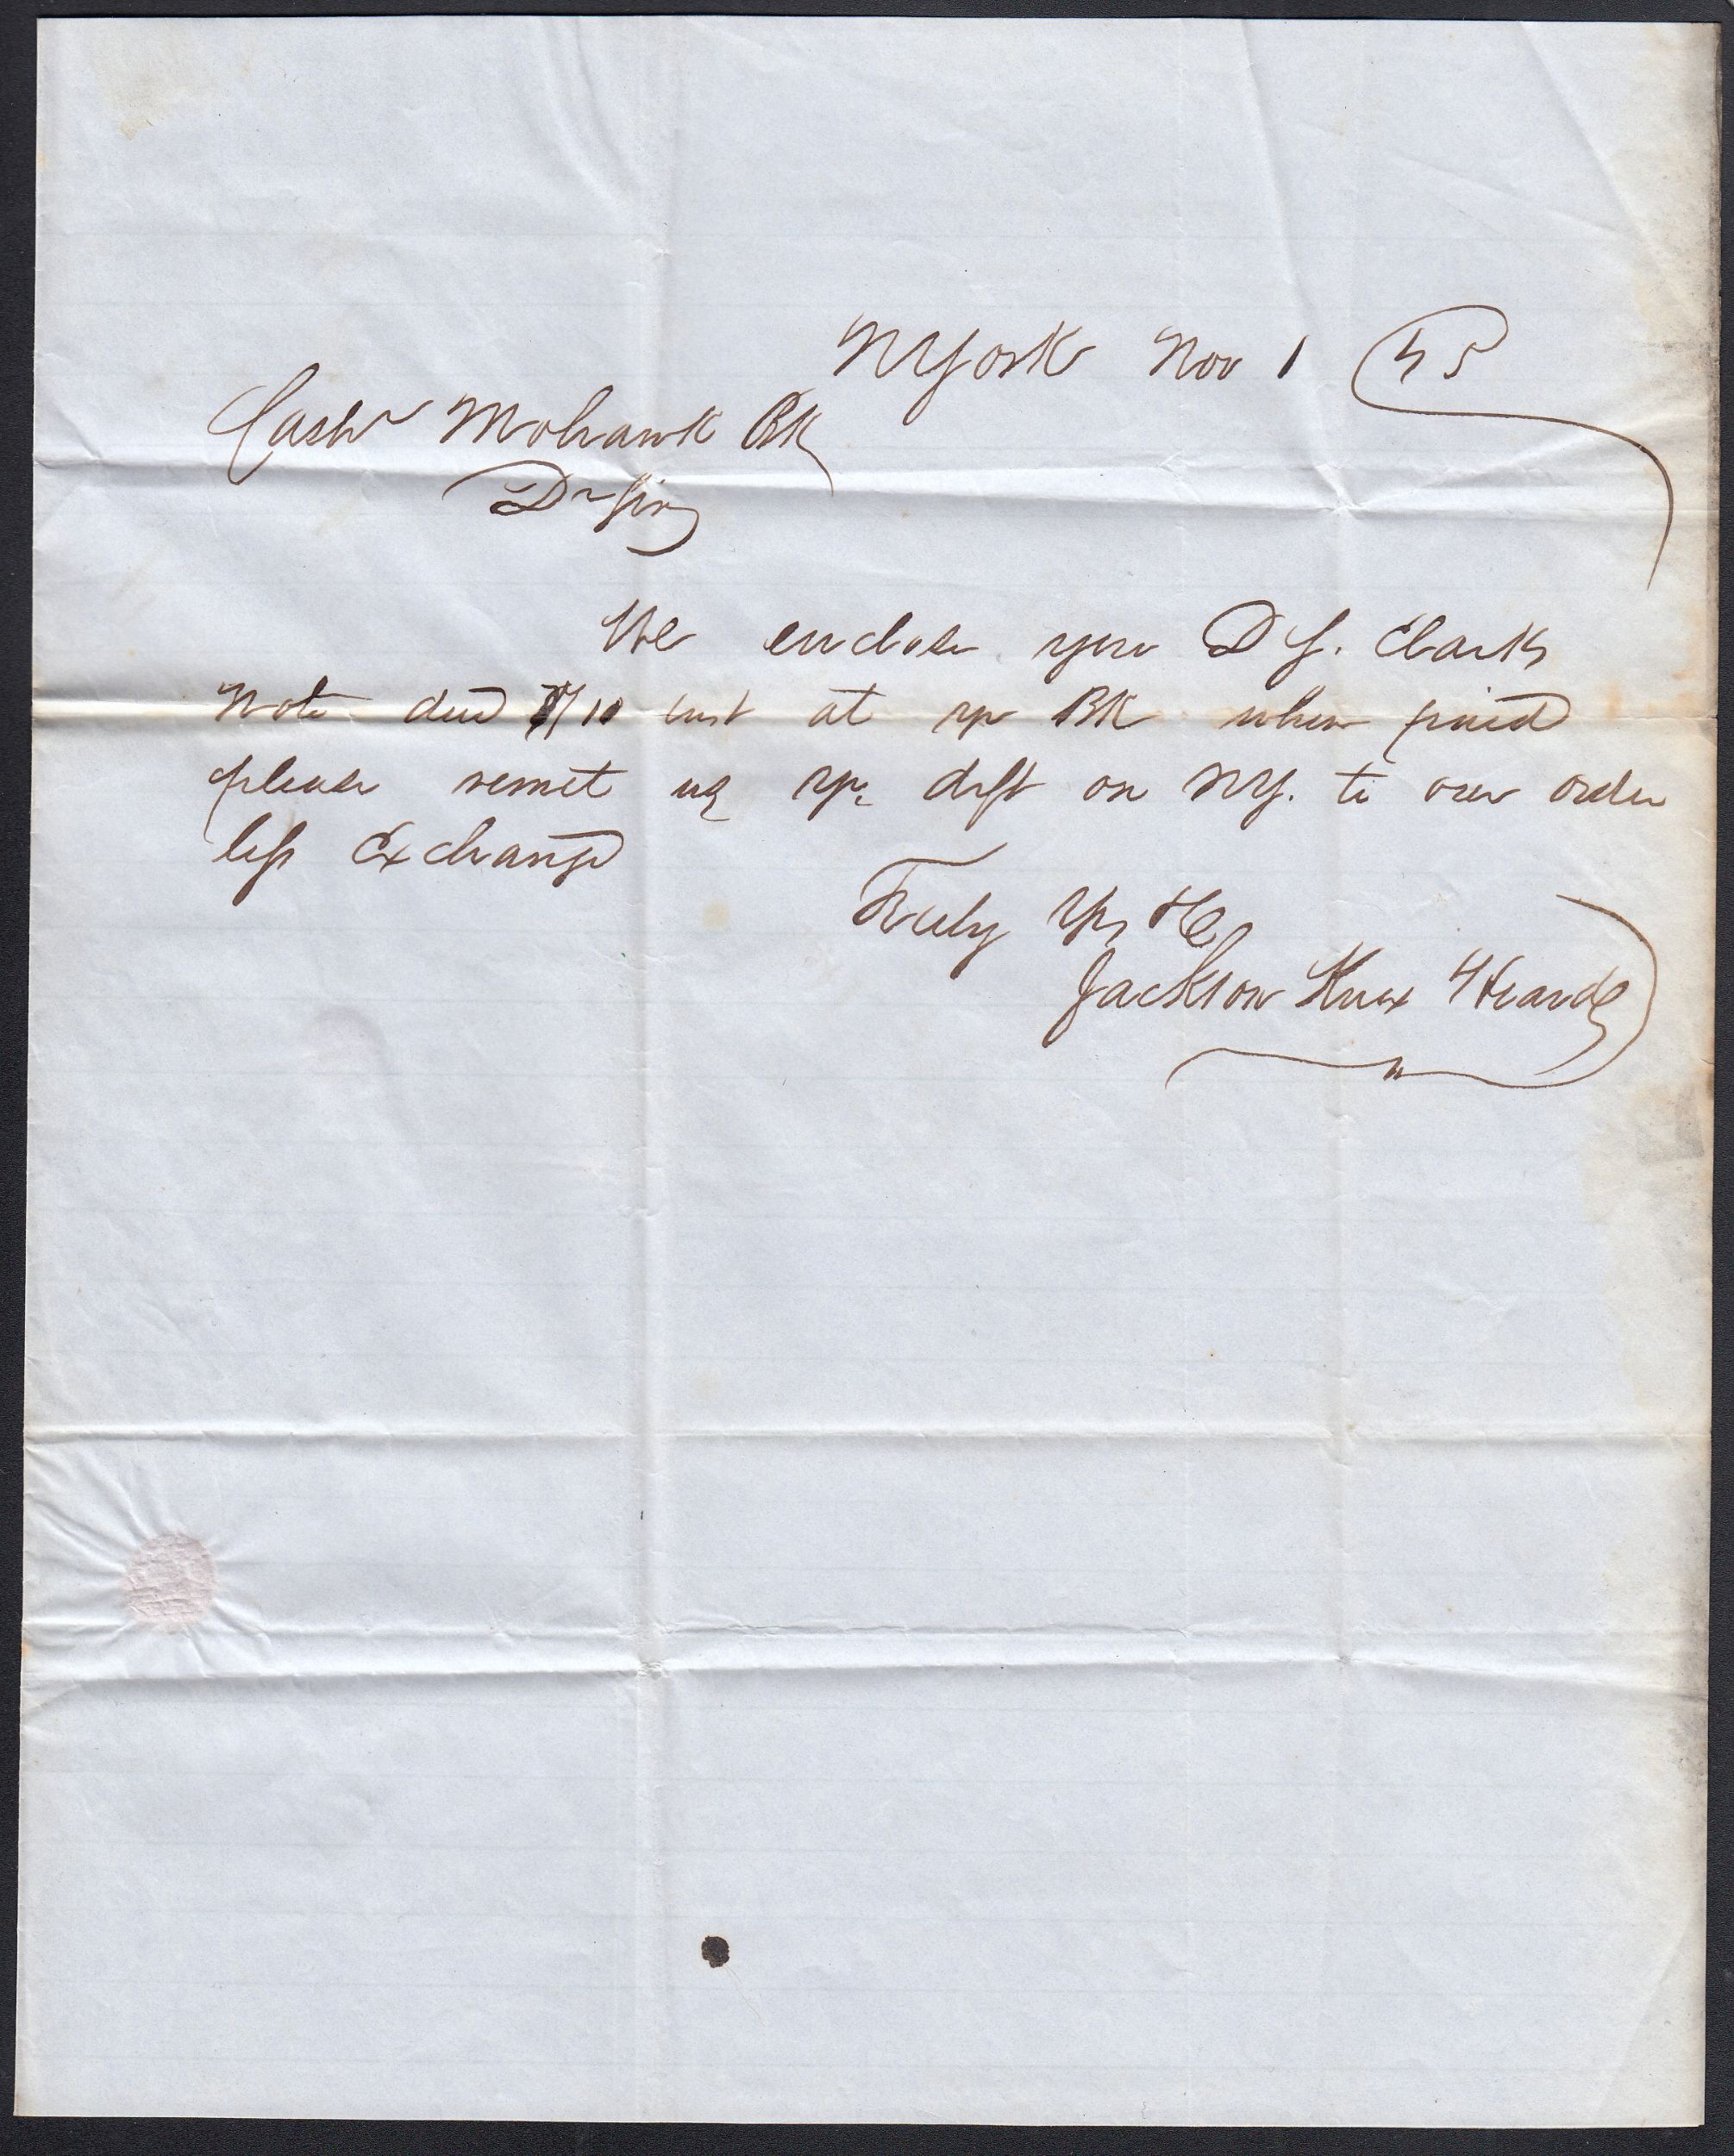 NYork Nov 1
Cashr Mohawk BK
Dr Sir
We enclose you D Clarks
Note due 7/10 inst at yr BK when paid
please remit us yr drft on NY. to our order
less Exchange
Truly Yrs &c
Jackson Knox